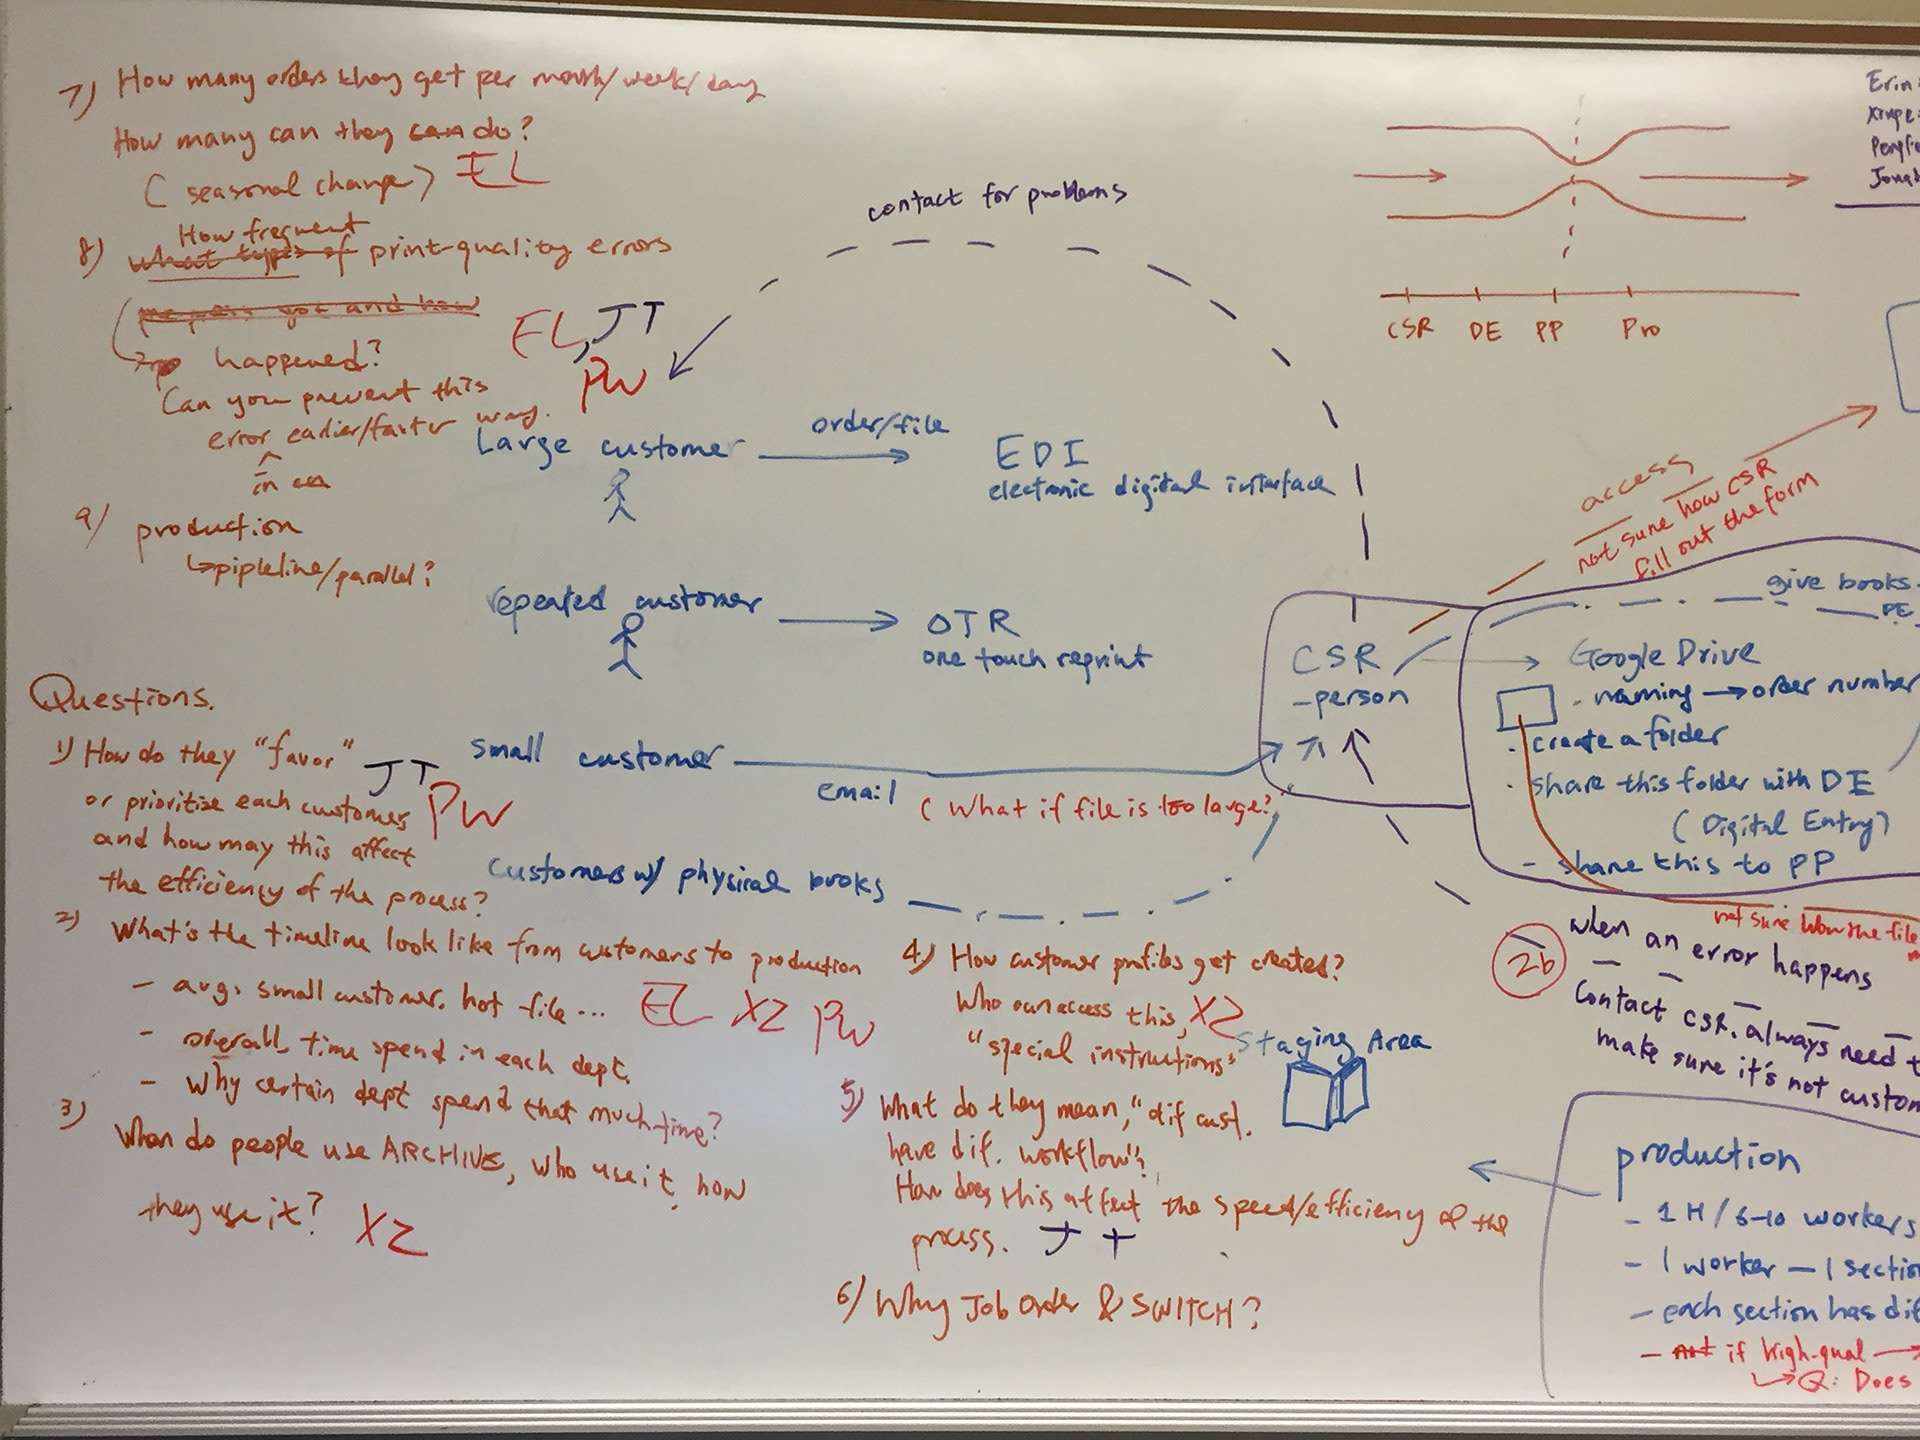 7) How many orders they get per month/week/day
How many can they can do?
(seasonal change) EL
How frequent
8) what types of print-quality errors
happened?
EL, JT
PW
Can you prevent this
error earlier/faster way.
in
9) production
↳pipleline/parallel?
contact for problems
Large customer
order/file
EDI
electronic digital interface
repeated customer
OTR
one touch reprint
small customer
email
(What if file is too large?
customers w/ physical books
Questions.
1) How do they "favor" JT
or prioritize each customers PW
and how may this affect
the efficiency of the process?
2) What's the timeline look like from customers to production
- avg. small customer. hot file... EL XZ PW
- overall time spend in each dept.
- Why certain dept spend that much time?
3) When do people use ARCHIVE, who use it, how
they use it? XZ
4) How customer profiles get created?
Who can access this, XZ
"special instructions"
Staging Area
5) What do they mean, "dif cust.
have dif. workflow"?
How does this affect the speed/efficiency of the
process. JT
6) Why Job Order & SWITCH?
CSR DE PP Pro
Erin
access
not sure how CSR
fill out the form
CSR
-person
give books
Google Drive
- naming → order number
- create a folder
- share this folder with DE
(Digital Entry)
- share this to PP
not sure how the file
2b
when an error happens
Contact CSR. always need t
make sure it's not custom
production
- 1H/6-10 workers
- 1 worker — 1 section
- each section has dif
- not if high-qual →
↳Q: Does